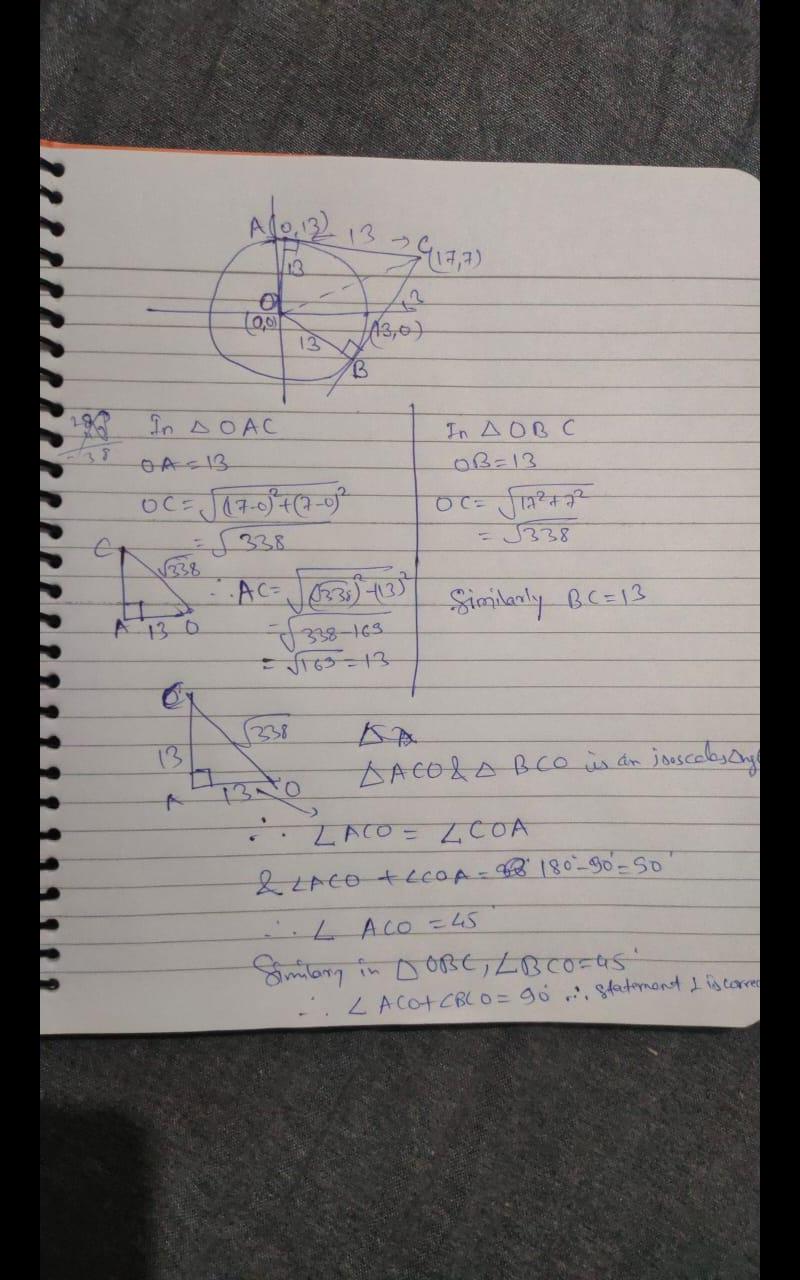 A (0,13) 13 → C
(17,7)
13
O
(0,0)
13
(13,0)
13
B
In △ OAC
OA = 13
OC = √(17-0)²+(7-0)²
= √338
C
√338
A 13 O
∴ AC = √(√338)²-(13)²
= √338-169
= √169 = 13
In △ OBC
OB = 13
OC = √17²+7²
= √338
Similarly BC = 13
C
√338
13
A 13 O
△ACO & △ BCO is an isosceles
∴ ∠ACO = ∠COA
& ∠ACO + ∠COA = 180°-90° = 90°
∴ ∠ ACO = 45°
Similarly in △ OBC, ∠BCO = 45°
∴ ∠ ACO+∠BCO = 90° ∴ Statement 1 is correc